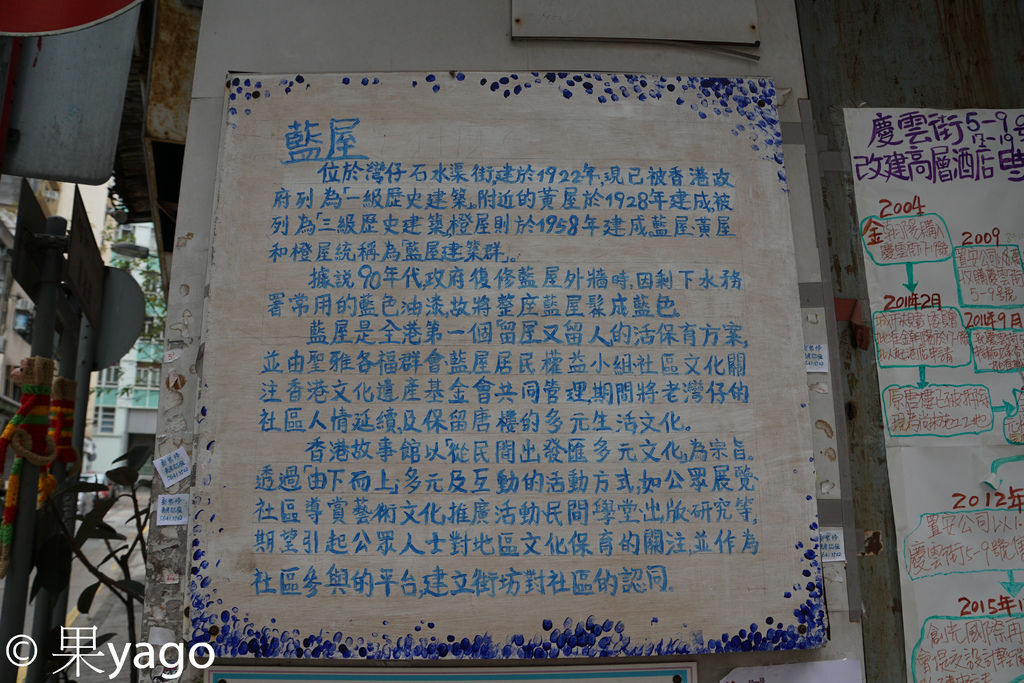 藍屋
位於灣仔石水渠街,建於1922年,現已被香港政
府列為「一級歷史建築」。附近的黃屋於1928年建成被
列為「三級歷史建築,橙屋則於1958年建成,藍屋,黃屋
和橙屋統稱為「藍屋建築群」。
據說90年代政府復修藍屋外牆時,因剩下水務
署常用的藍色油漆,故將整座藍屋髹成藍色.
藍屋是全港第一個「留屋又留人」的活保育方案,
並由聖雅各福群會,藍屋居民權益小組,社區文化關
注,香港文化遺產基金會共同管理,期間將老灣仔的
社區人情延續,及保留唐樓的多元生活文化。
香港故事館以「從民間出發,匯多元文化」為宗旨。
透過「由下而上」,多元及互動的活動方式,如公眾展覽
社區導賞,藝術文化推廣活動,民間學堂,出版研究等,
期望引起公眾人士對地區文化保育的關注,並作為
社區參與的平台,建立街坊對社區的認同。
慶雲街5-9
改建高層酒店
2004
2009
5-9號
2011年2月
2011年9月
2012年
慶雲街5-9號
2015年1
© 果yago